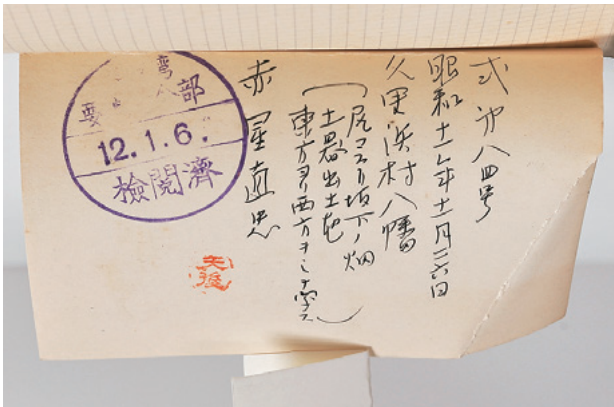 弍第八四号
昭和十一年十一月二六日
久里浜村八幡
(尻コスリ坂下ノ畑
土器出土地
東方ヨリ西方ヲミテ写ス)
赤星直忠
灣
要 部
12.1.6.
檢閲濟
矢後